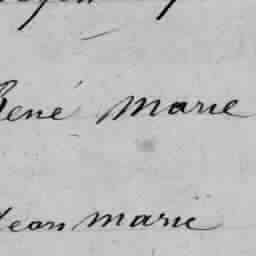 René Marie
Jean Marie